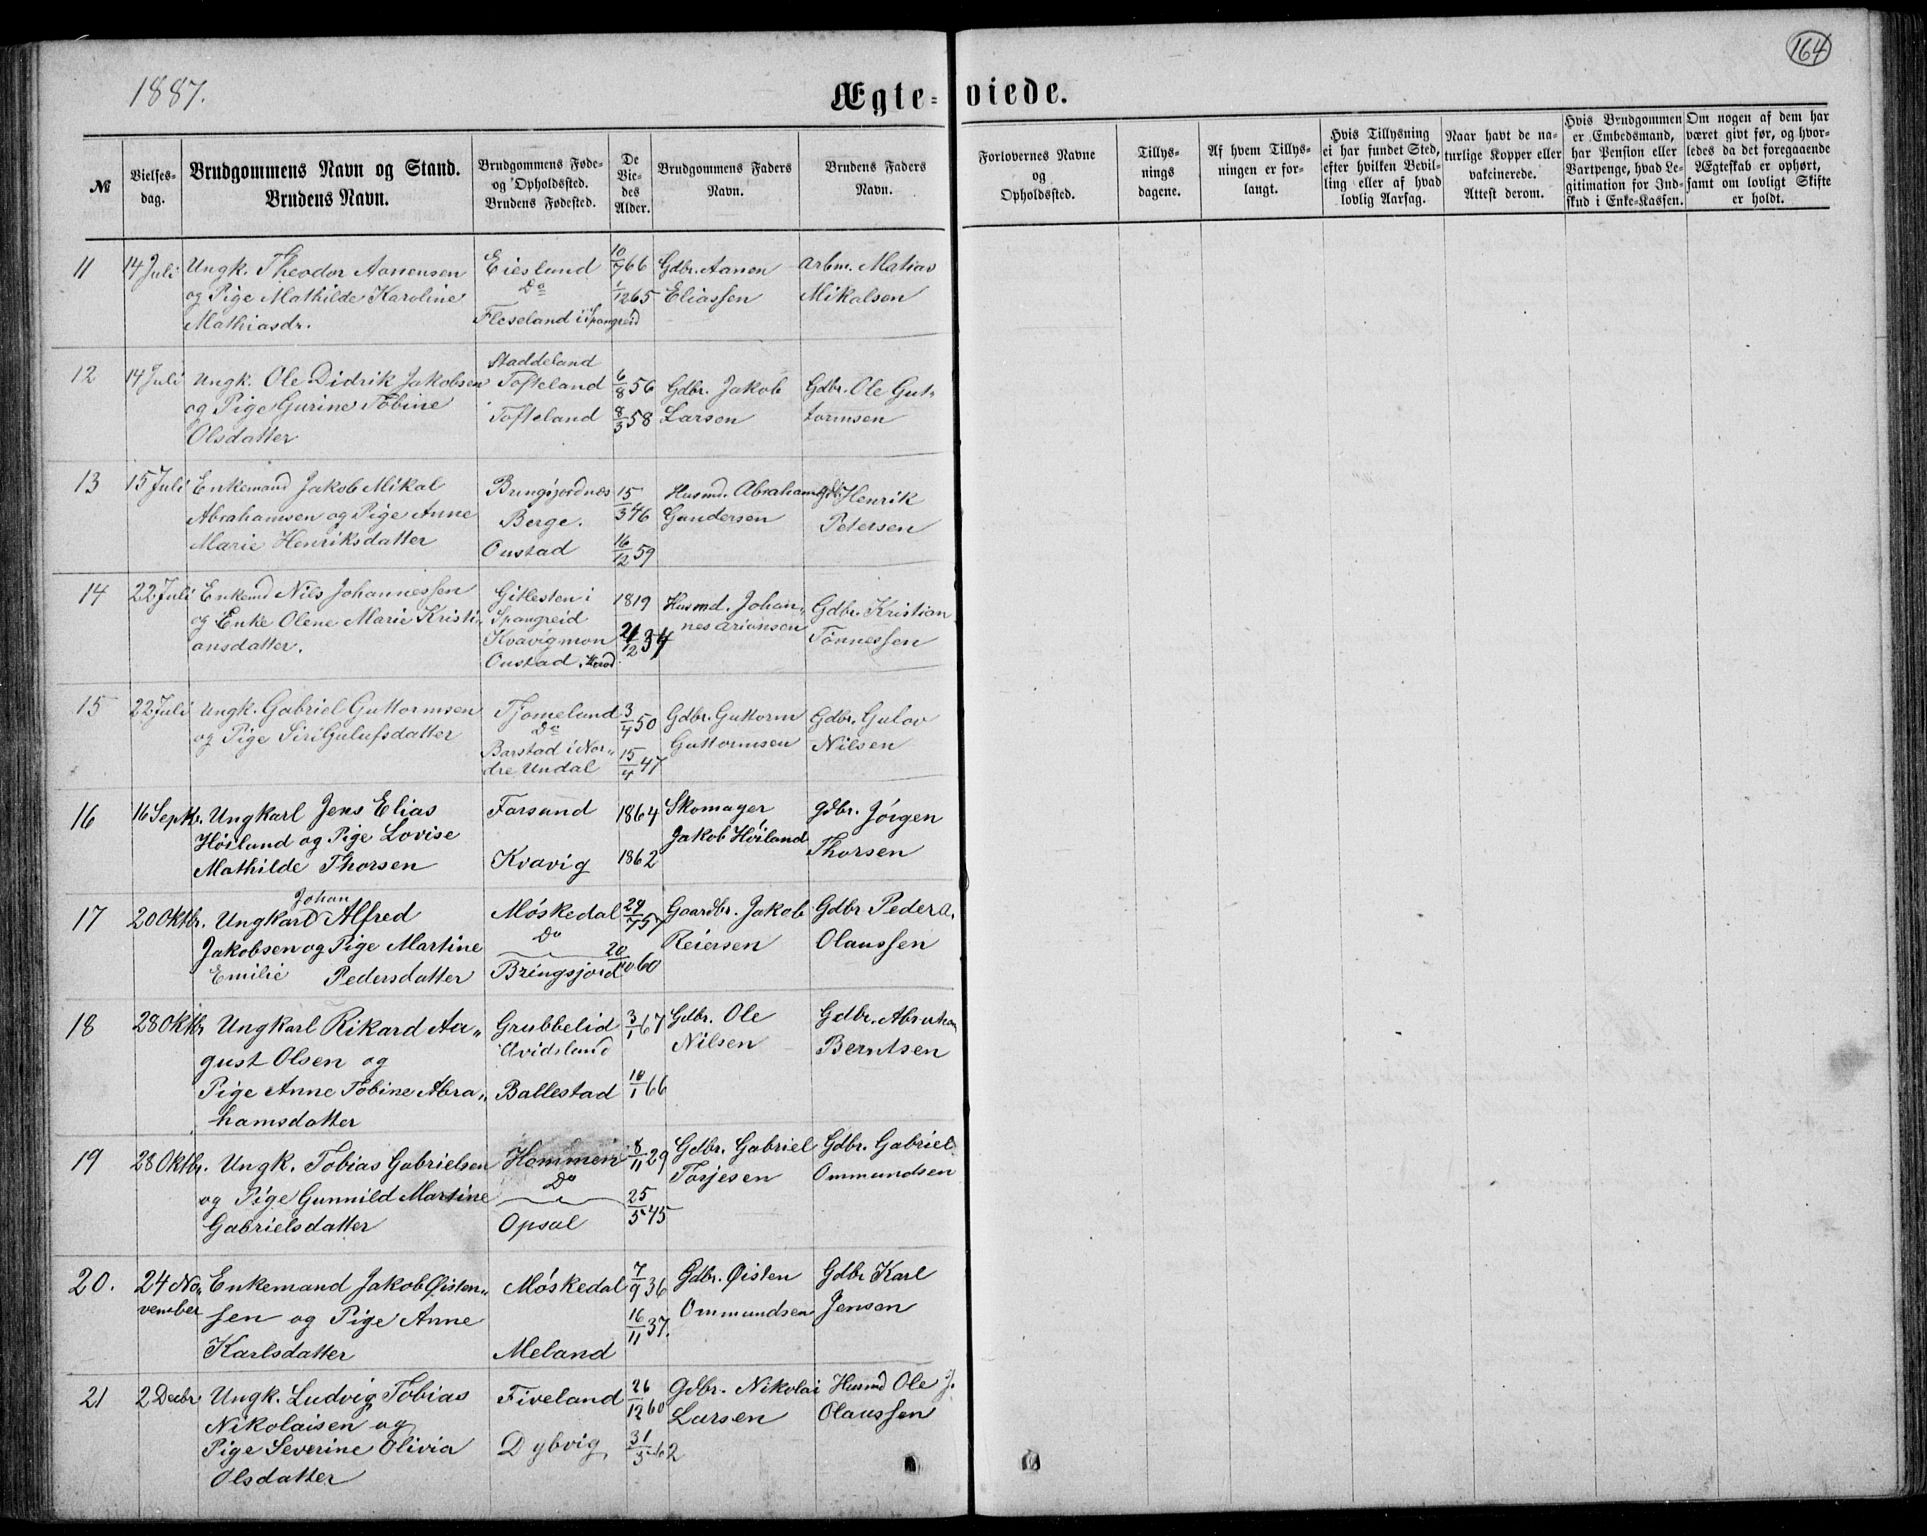 164
1887.
Ægte=viede.
№
Vielses-
dag.
Brudgommens Navn og Stand.
Brudens Navn.
Brudgommens Føde-
og Opholdssted.
Brudens Fødested.
De
Vie-
des
Alder.
Brudgommens Faders
Navn.
Brudens Faders
Navn.
Forlovernes Navne
og
Opholdssted.
Tillys-
nings
dagene.
Af hvem Tillys-
ningen er for-
langt.
Hvis Tillysning
ei har fundet Sted,
efter hvilken Bevil-
ling eller af hvad
lovlig Aarsag.
Naar havt de na-
turlige Kopper eller
vakcinerede.
Attest derom.
Hvis Brudgommen
er Embedsmand,
har Pension eller
Vartpenge, hvad Le-
gitimation for Ind-
skud i Enke-Kassen.
Om nogen af dem har
været givt før, og hvor-
ledes da det foregaaende
Ægteskab er ophørt,
samt om lovligt Skifte
er holdt.
11 14 Juli Ungk. Theodor Aanensen Eiesland 10/7 66 Gdbr. Aanen Arbm. Matias
og Pige Mathilde Karoline Do 1/12 65 Eliassen Mikalsen
Mathiasdr. Fleseland i Spangreid
Staddeland
12 14 Juli Ungk. Ole Didrik Jakobsen Tofteland 6/8 56 Gdbr. Jakob Gdbr. Ole Gut-
og Pige Gurine Tobine Tofteland 8/3 58 Larsen tormsen
Olsdatter
13 15 Juli Enkemand Jakob Mikal Bringsjordnes 15/3 46 Husmd. Abraham Gdb. Henrik
Abrahamsen og Pige Anne Berge. Gundersen Petersen
Marie Henriksdatter Oustad 16/12 59
14 22 Juli Enkemd Nils Johannessen Gitlesten i 1819 Husmd. Johan- Gdbr. Kristian
og Enke Olene Marie Kristi- Spangreid nes Arionsen Tønnessen
ansdatter. Kvavigmon 21/2 34
Oustad. Herod
15 22 Juli Ungk. Gabriel Guttormsen Tjomeland 3/4 50 Gdbr. Guttorm Gdbr. Gulov
og Pige Siri Gulufsdatter Do Guttormsen Nilsen
Barstad i Nor- 15/4 47
dre Undal
16 16 Septb. Ungkarl Jens Elias Farsund 1864 Skomager Gdbr. Jörgen
Höiland og Pige Lovise Jakob Höiland Thorsen
Mathilde Thorsen Kvavig 1862
Johan
17 20 Oktbr. Ungkarl Alfred Möskedal 24/7 57 Gaardbr. Jakob Gdbr Peder A.
Jakobsen og Pige Martine Do Reiersen Olaussen
Emilie Pedersdatter Bringsjord 20/10 60
18 28 Oktbr Ungkarl Rikard Au- Grubbelid 3/1 67 Gdbr. Ole Gdbr. Abraham
gust Olsen og Qvidsland Nilsen Berntsen
Pige Anne Tobine Abra- Ballestad 10/1 66
hamsdatter
19 28 Oktbr. Ungk. Tobias Gabrielsen Hommen 8/11 29 Gdbr. Gabriel Gdbr. Gabriel
og Pige Gunnild Martine Do Torjesen Ommundsen
Gabrielsdatter Opsal 25/5 45
20. 24 No- Enkemand Jakob Øisten- Möskedal 7/9 36 Gdbr. Øisten Gdbr Karl
vember sen og Pige Anne 16/11 37. Ommundsen Jensen
Karlsdatter Meland
21 2 Decbr Ungk. Ludvig Tobias Fiveland 26/12 60 Gdbr. Nikolai Husmd Ole J.
Nikolaisen og Larsen Olaussen
Pige Severine Olivia Dybvig 31/3 62
Olsdatter